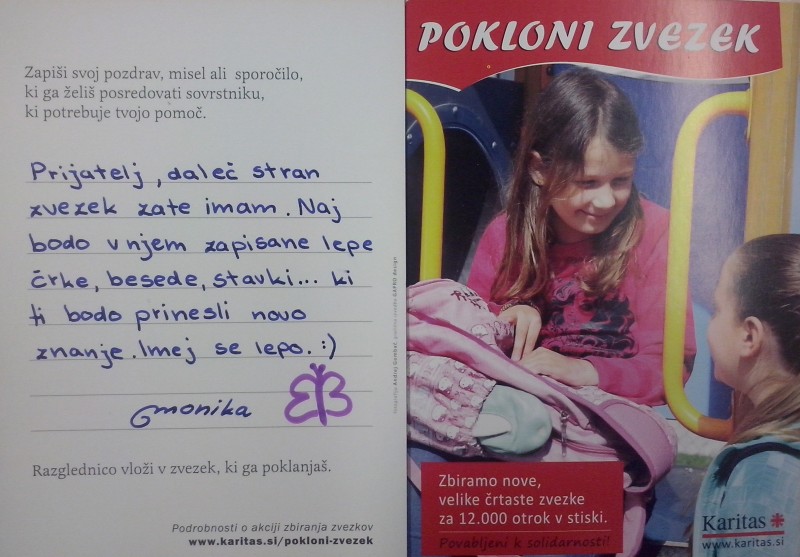 Zapiši svoj pozdrav, misel ali sporočilo,
ki ga želiš posredovati sovrstniku,
ki potrebuje tvojo pomoč.
Prijatelj, daleč stran
zvezek zate imam. Naj
bodo v njem zapisane lepe
črke, besede, stavki... ki
ti bodo prinesli novo
znanje. Imej se lepo. :)
monika
Razglednico vloži v zvezek, ki ga poklanjaš.
Podrobnosti o akciji zbiranja zvezkov
www.karitas.si/pokloni-zvezek
POKLONI ZVEZEK
Zbiramo nove,
velike črtaste zvezke
za 12.000 otrok v stiski.
Povabljeni k solidarnosti!
Karitas
www.karitas.si